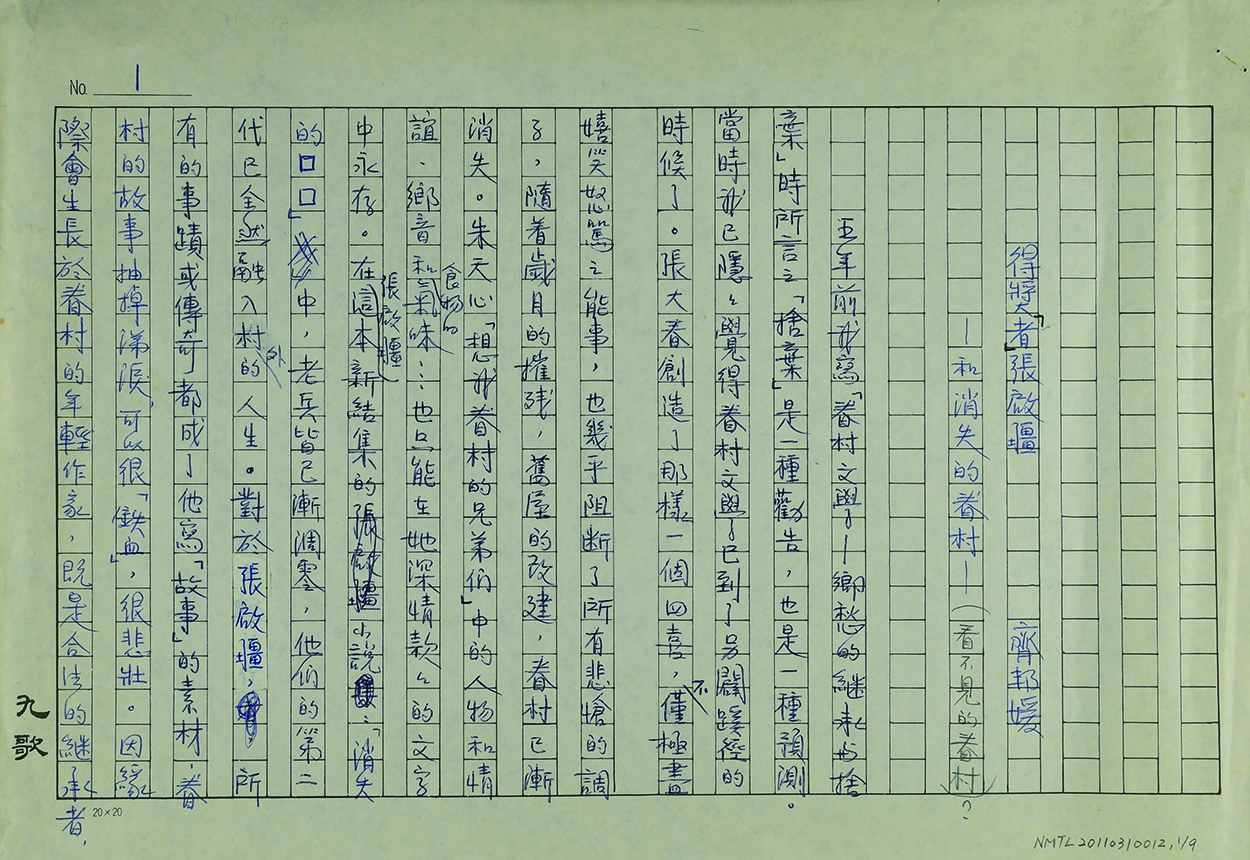 No. 1
得獎「者」張啟疆　齊邦媛
—和消失的眷村—（看不見的眷村）？
五年前我寫「眷村文學」—鄉愁的繼承與捨
棄」時所言之「捨棄」是一種勸告，也是一種預測。
當時我已隱々覺得眷村文學，已到了另闢蹊徑的
時候了。張大春創造了那樣一個四喜，不僅極盡
嬉笑怒罵之能事，也幾乎阻断了所有悲愴的調
子，隨着歲月的摧残，舊屋的改建，眷村已漸
消失。朱天心「想我眷村的兄弟们」中的人物和情
誼．鄉音和食物的氣味…也只能在她深情款々的文字
中永存。在張啟疆這本新結集的張啟疆小說：「消失
的□□」中，老兵皆已漸凋零，他们的第二
代已全然融入村外的人生。對於張啟疆，所
有的事蹟或傳奇都成了他寫「故事」的素材．眷
村的故事抽掉涕淚，可以很「鉄血」，很悲壯。因緣
際會生長於眷村的年輕作家，既是合法的繼承者，
20×20
九歌
NMTL20110310012, 1/9